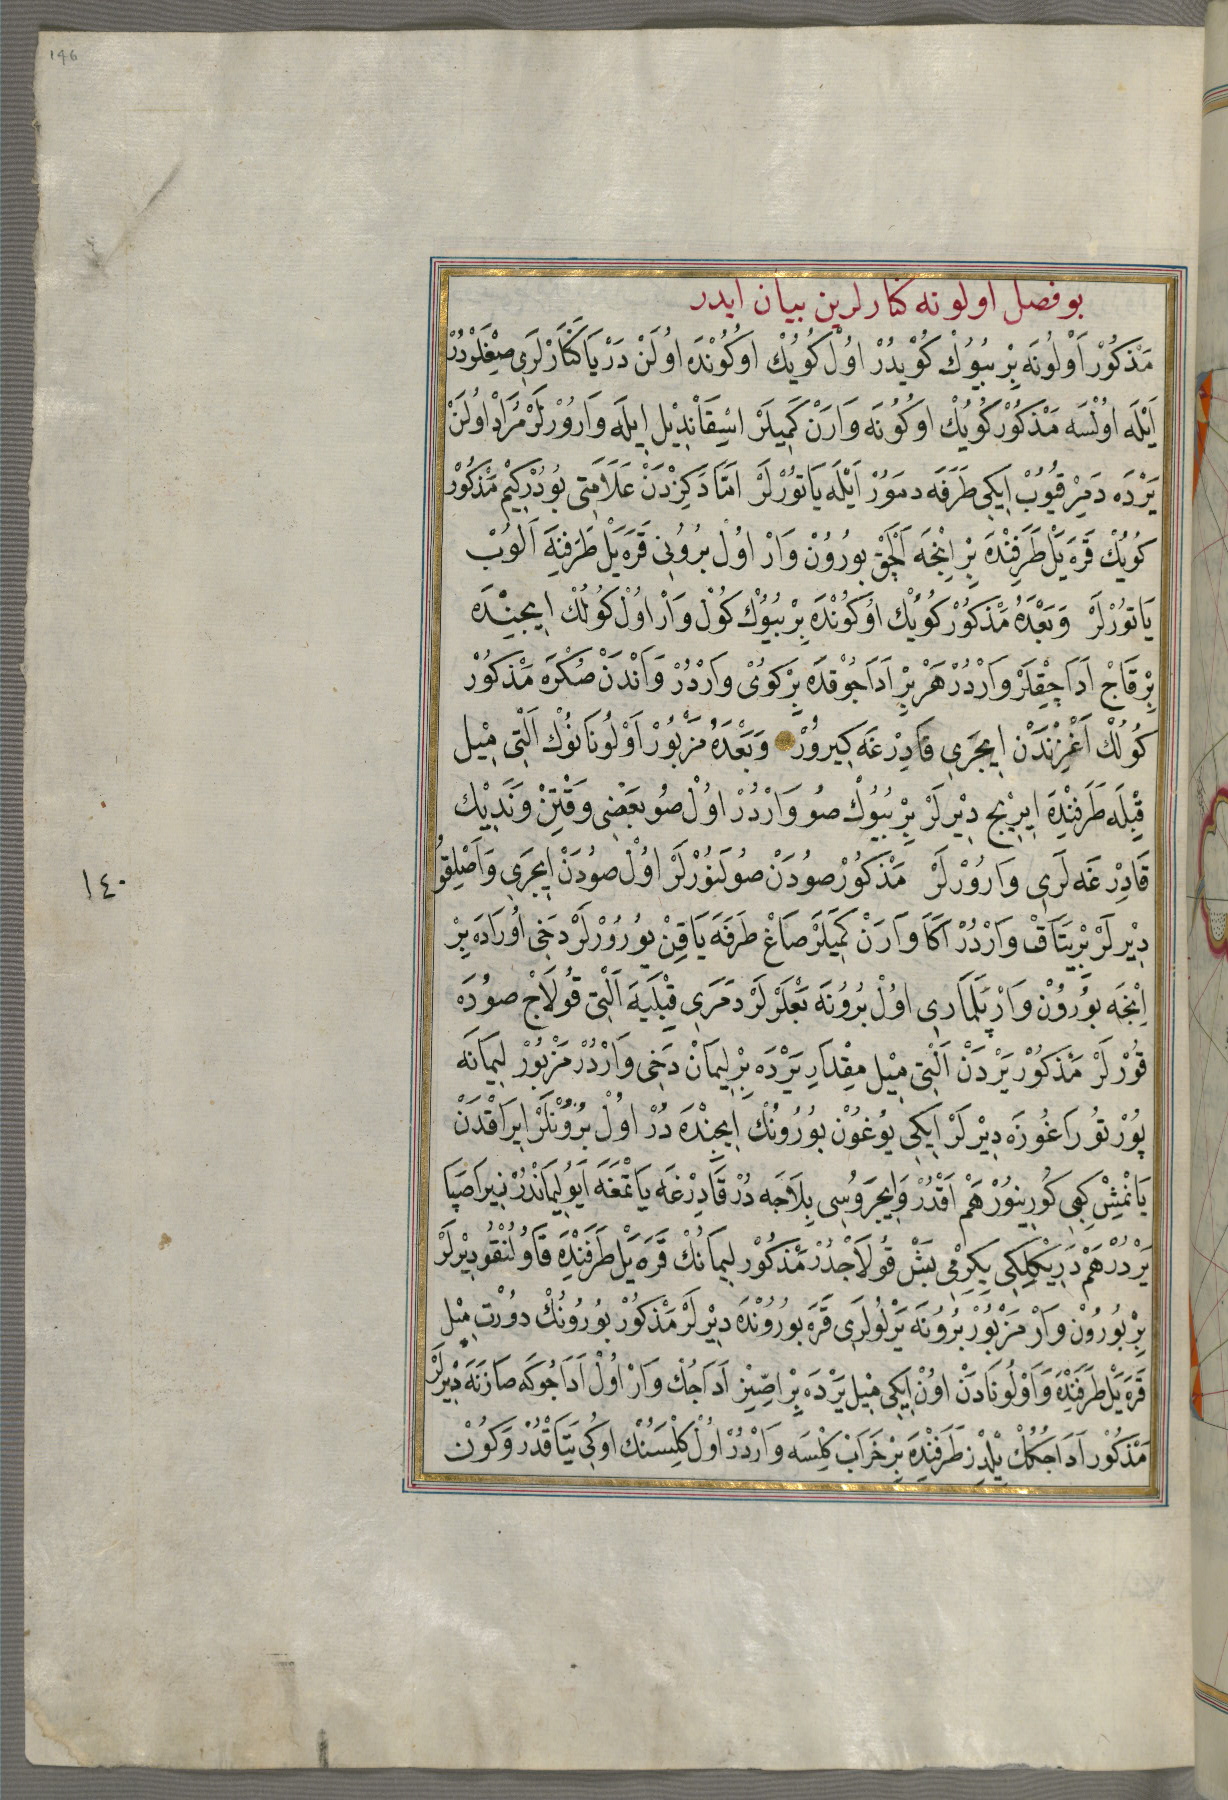 146
بو فصل اولونه كنارلرين بيان ايدر
مَذْكُوْر اَوْلُونَه بِرْ بُيُوكْ كُوْيدُرْ اوُلْ كُويُكْ اوكُوُنْدَه اوُلَنْ دَرْيَا كَنَارْلَرِى صِيْغْلَرْدُرْ
اَيْلَه اوُلْسَه مَذْكُوْر كُويُكْ اوكُوُنَه وَارَنْ كَمِيلَرْ اسْقَانْدِيلْ اِيلَه وَارُوْرلَرْ مُرَادْ اوُلَنْ
يَرْدَه دَمِرْ قُيُوبْ اِيكِى طَرَفَه دمَوْر اَيْلَه يَاتُوْرلَرْ اَمَّا دَكِزْدَنْ عَلَامَتِى بُودُرْكِيمْ مَذْكُوْر
كُويُكْ قَرَه يَلْ طَرَفِنْدَه بِرْ اِنْجَه اَلْچَقْ بورُوُنْ وَارْ اوُلْ برُوُنِى قَرَه يَلْ طَرَفِنَه اَلُوبْ
يَاتوُرْلَرْ وَبَعْدَهُ مَذْكُوْر كُويُكْ اوُكُوُنْدَه بِرْ بُيُوكْ كُولْ وَارْ اوُلْ كُولُكْ اِيچِنْدَه
بِرْ قَاجْ اَدَاجِقْلَرْ وَارْدُرْ هَرْ بِرْ اَدَاجُوقدَه بِرْ كُوىْ وَارْدُرْ وَاَنْدَنْ صُكْرَه مَذْكُوْر
كُولُكْ اَغْزِنْدَنْ اِيچَرِى قَادِرْغَه كِيروُرْ وَبَعْدَهُ مَزْبُوْر اَوْلُونَانُوكْ اَلْتِى مِيلْ
قِبْلَه طَرَفِنْدَه اِيرِيْنجْ دِيْرلَرْ بِرْ بُيُوكْ صُو وَارْدُرْ اوُلْ صُو بَعْضِى وَقْتِنْ وَنَدِيكْ
قَادِرْغَه لَرِى وَارُوْرلَرْ مَذْكُوْر صُودَنْ صُولَنُوْرلَرْ اوُلْ صُودَنْ اِيچَرِى وَاصْلِقُو
دِيْرلَرْ بِرْ يَتَاقْ وَارْدُرْ اَكَا وَارَنْ كَمِيلَرْ صَاغْ طَرَفَه يَاقِنْ يُورُوْرلَرْ دَخِى اُورَادَه بِرْ
اِنْجَه بُورُوُنْ وَارْ پَلَمَارِى اوُلْ بُرُونَه بَغْلَرْلَرْ دَمَرِى قِبْلَيَه اَلْتِى قُولَاجْ صُودَه
قُوْرلَرْ مَذْكُوْر يَرْدَنْ اَلْتِى مِيلْ مِقْدَارِ يَرْدَه بِرْ لِيمَانْ دَخِى وَارْدُرْ مَزْبُوْر لِيمَانَه
پُوْرتُو رَاغُوزَه دِيْرلَرْ اِيكِى يُوغُوُنْ بُورُونُكْ اِيچِنْدَه دُرْ اوُلْ بُرُونْلَرْ اِيرَاقْدَنْ
يَانْمِشْ كِبِى كُورِينُوْر هَمْ اَقْدُرْ وَاِيچَرُوسِى بِلَاجَه دُرْ قَادِرْغَه يَاتْمَغَه اَيُو لِيمَانْدُرْ زِيرَا صَپَا
يَرْدُرْ هَمْ دَرِيكْلِكِى يِكِرْمِى بَشْ قُولَاجْدُرْ مَذْكُوْر لِيمَانُكْ قَرَه يَلْ طَرَفَنْدَه قَاوُلُنْقُو دِيْرلَرْ
بِرْ بُورُوُنْ وَارْ مَزْبُوْر بُرُونَه يَرْلُولَرِى قَرَه بُورُوُنْدَه دِيْرلَرْ مَذْكُوْر بُورُونُكْ دُوْرتْ مِيلْ
قَرَه يَلْ طَرَفَنْدَه وَاَوْلُونَادَنْ اوُنْ اِيكِى مِيلْ يَرْدَه بِرْ اصِّيزْ اَدَاجُكْ وَارْ اوُلْ اَدَاجُوكَه صَازَنَه دِيْرلَرْ
مَذْكُوْر اَدَاجُكُكْ يِلْدِزْ طَرَفِنْدَه بِرْ خَرَابْ كِلِسَه وَارْدُرْ اوُلْ كِلِسَنُكْ اوكِى يَتَاقْدُرْ وَكُوْن
١٤٠